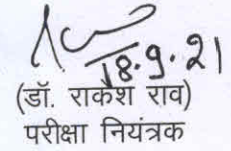 18.9.21
(डॉ. राकेश राव)
परीक्षा नियंत्रक